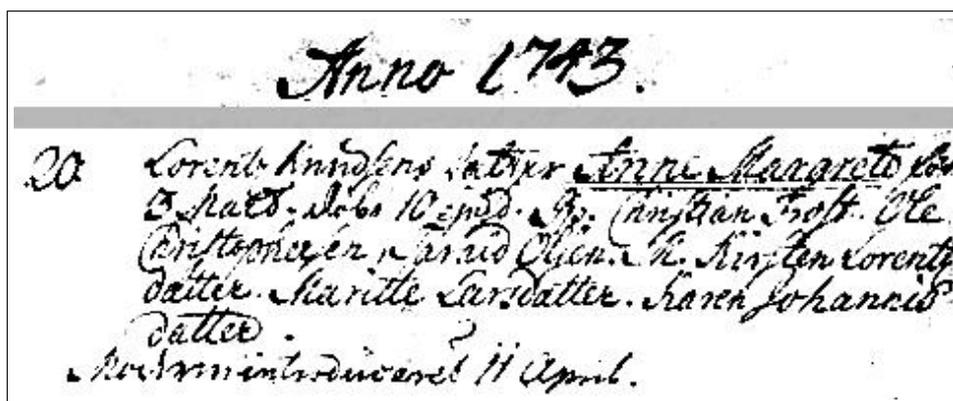 Anno 1743.
20 Lorentz Knudsens datter Anne Margrete
3 Mart. Dobt 10 ejusd. Christian Frost. Ole
Christophersen, Olsen. Kirsten Lorentz
datter. Maritte Larsdatter. Karen Johannis
datter.
introduceret 11 April.